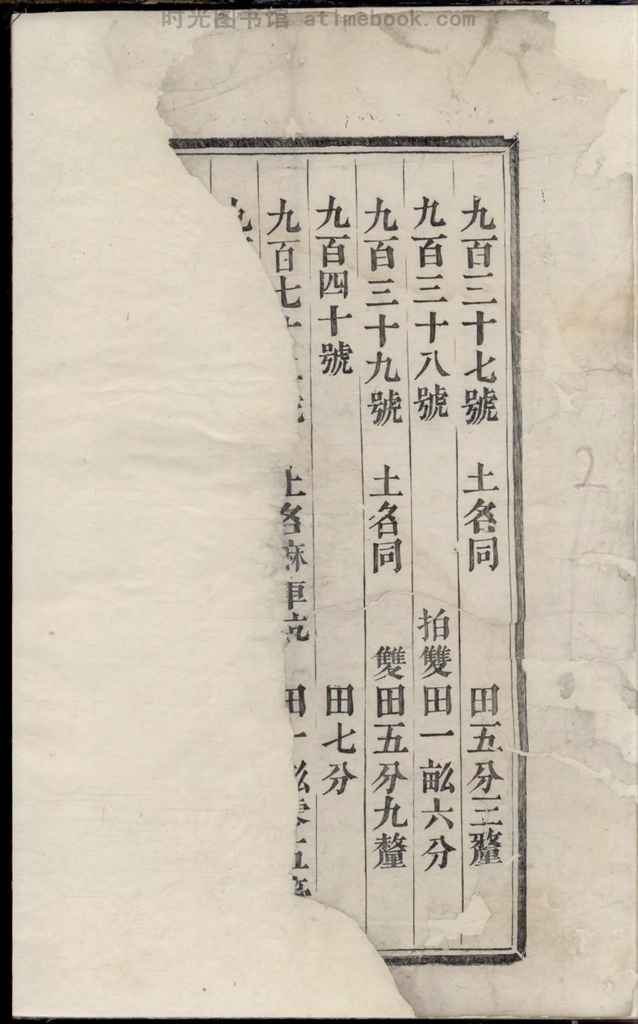 时光图书馆 atlmebook.com
九百三十七號 土名同 田五分三釐
九百三十八號 拍雙田一畝六分
九百三十九號 土名同 雙田五分九釐
九百四十號 田七分
九百七十 號 土名麻車 田一畝零五
九
2